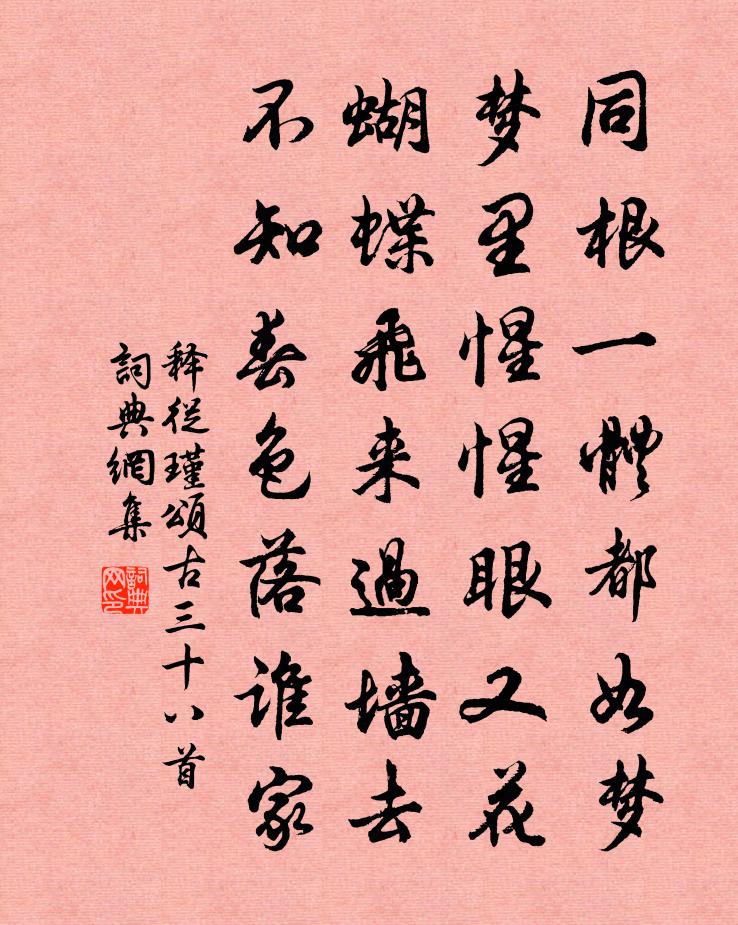 同根一體都如梦
梦里惺惺眼又花
蝴蝶飛来過墙去
不知春色落谁家
释從瑾頌古三十八首
詞典網集
詞典网印